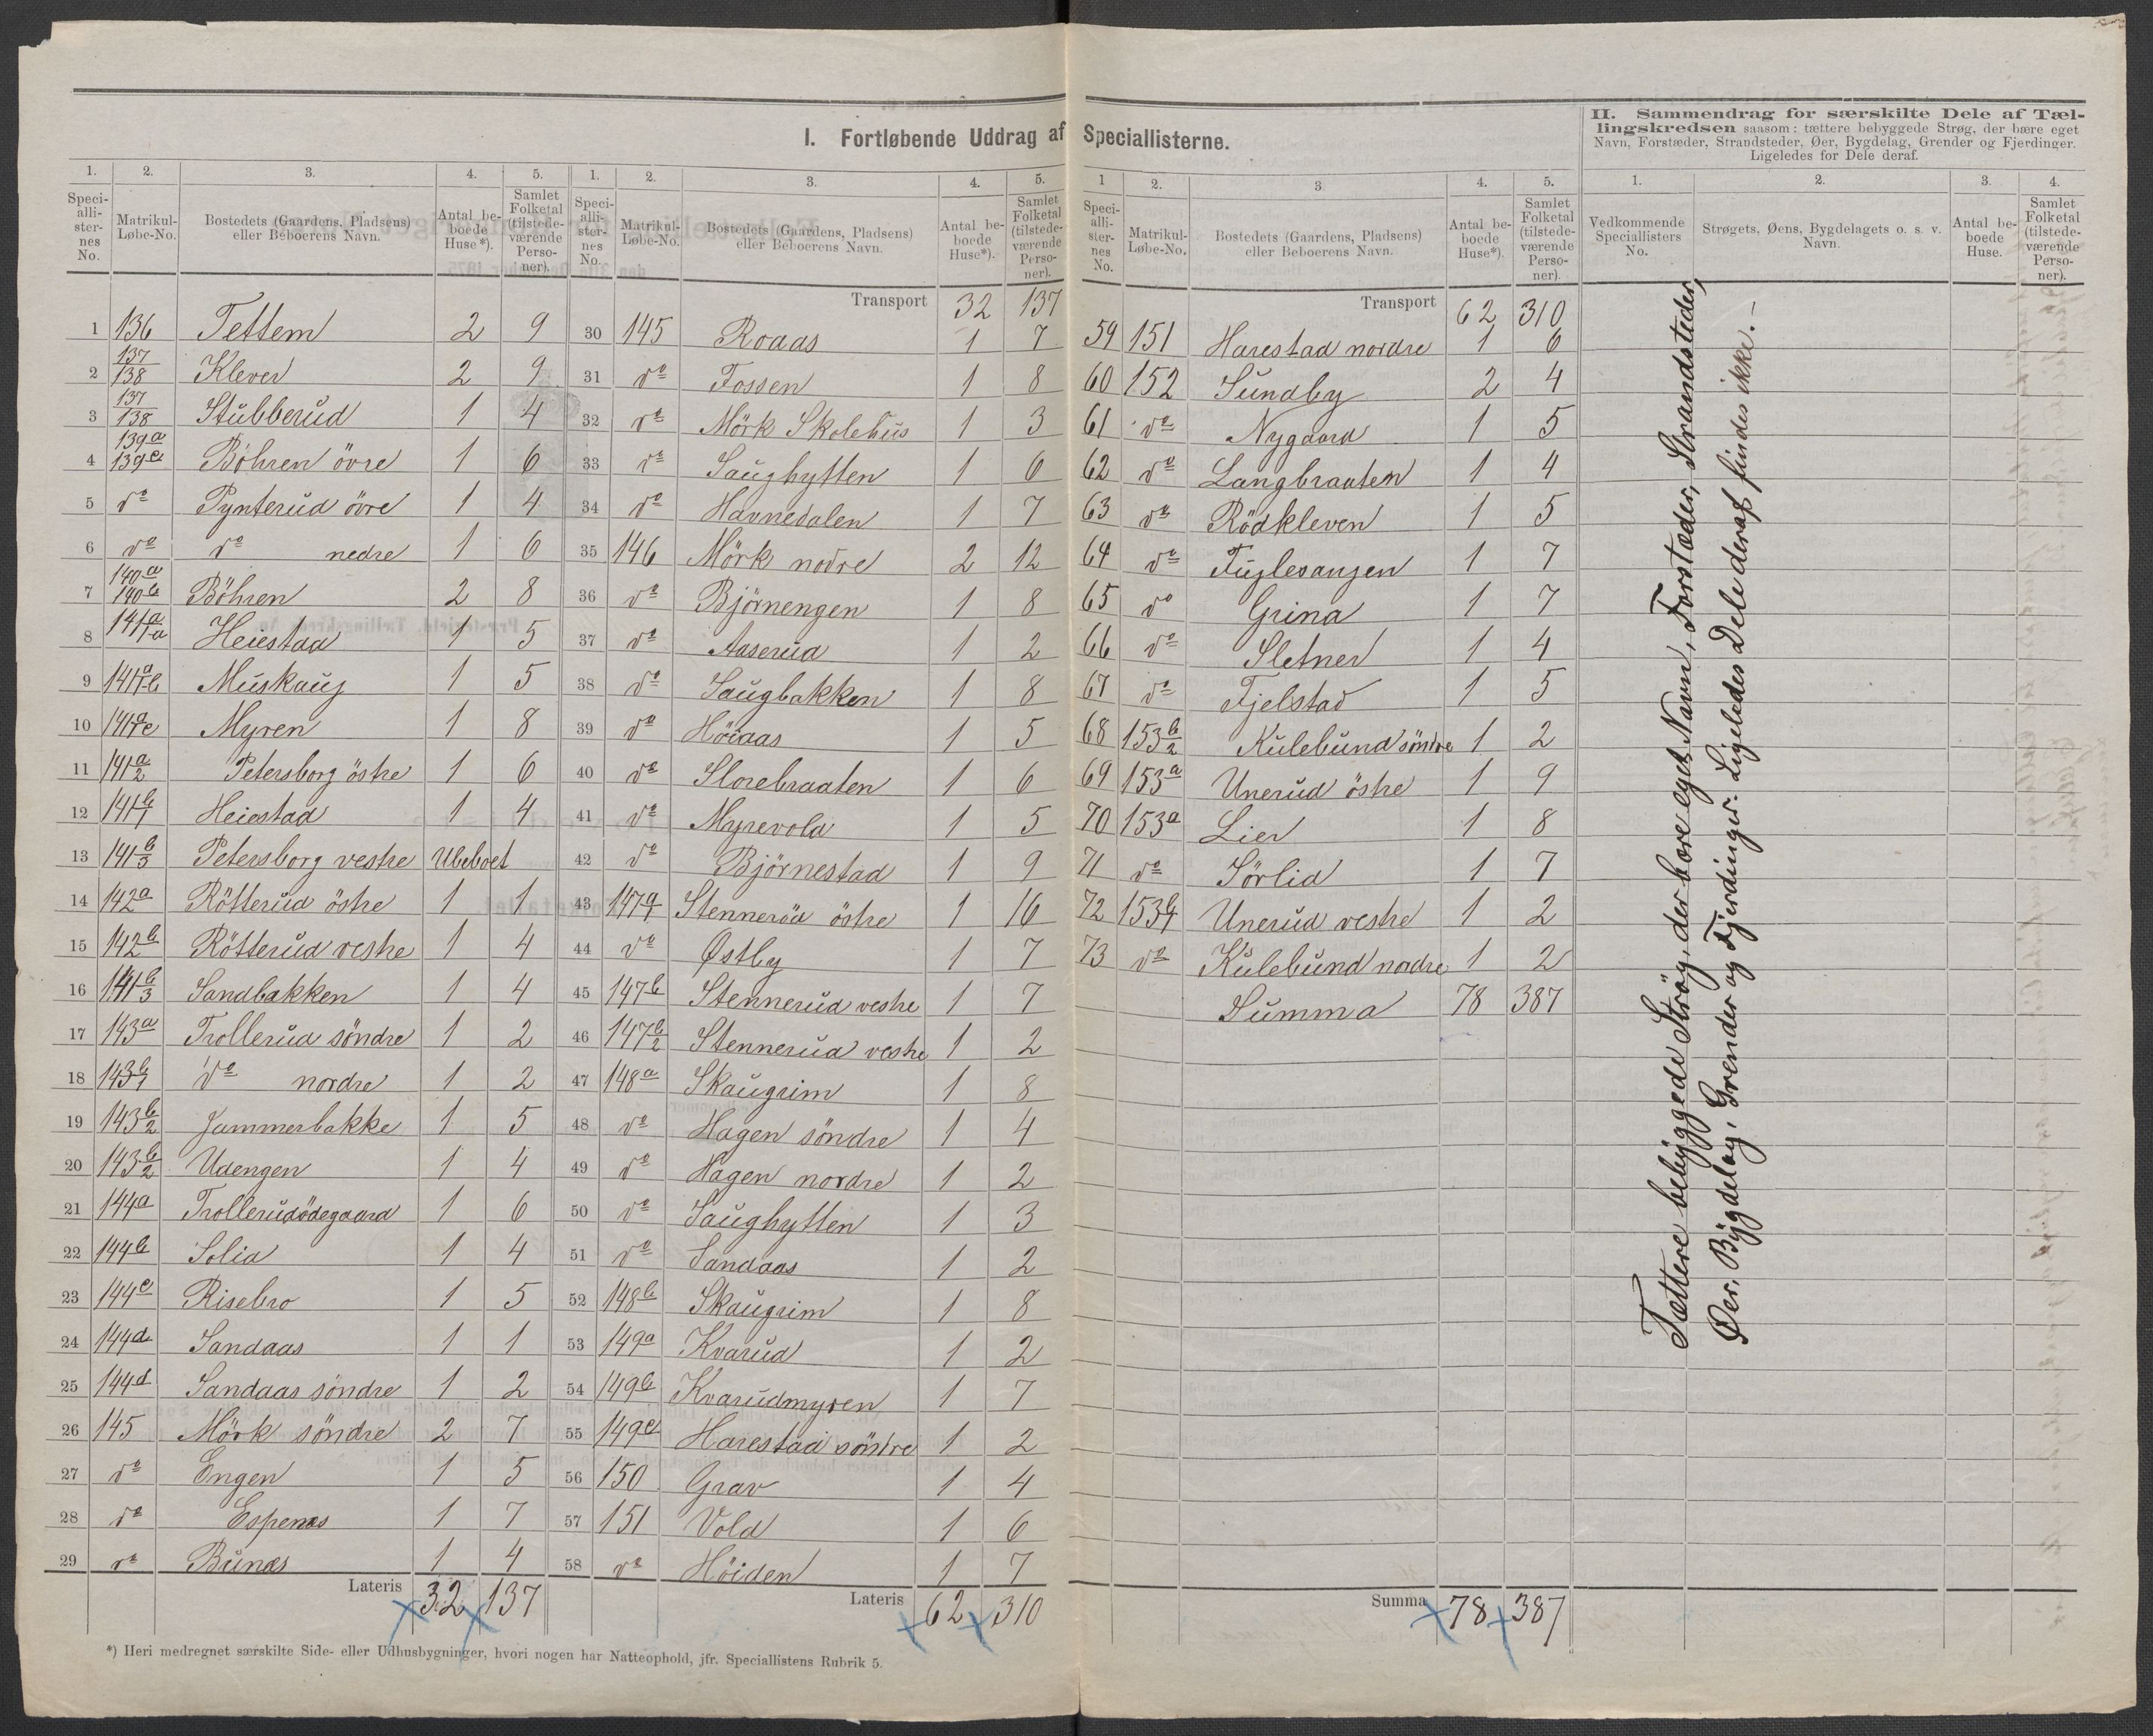 I. Fortløbende Uddrag af Speciallisterne.
II. Sammendrag for særskilte Dele af Tæl-
lingskredsen saasom: tættere bebyggede Strøg, der bære eget
Navn, Forstæder, Strandsteder, Øer, Bygdelag, Grender og Fjerdinger.
Ligeledes for Dele deraf.
1. 2. 3. 4. 5.
Speci-alli-ster-nes No. Matrikul-Løbe-No. Bostedets (Gaardens, Pladsens) eller Beboerens Navn. Antal be-boede Huse*). Samlet Folketal (tilstede-værende Perso-ner).
1 136 Tettem 2 9
2 137/138 Klever 2 9
3 137/138 Stubberud 1 4
4 139a 139c Böhren övre 1 6
5 do Pynterud övre 1 4
6 do do nedre 1 6
7 140a 140b Böhren 2 8
8 141a/a Heiestad 1 5
9 141a/b Muskaug 1 5
10 141a/c Myren 1 8
11 141a/2 Petersborg östre 1 6
12 141b/1 Heiestad 1 4
13 141b/3 Petersborg vestre Ubeboet
14 142a Rötterud östre 1 1
15 142b Rötterud vestre 1 4
16 141b/3 Sandbakken 1 4
17 143a Trollerud söndre 1 2
18 143b/1 do nordre 1 2
19 143b/2 Jammerbakke 1 5
20 143b/2 Udengen 1 4
21 144a Trollerudödegaard 1 6
22 144b Solia 1 4
23 144c Risebro 1 5
24 144d Sandaas 1 1
25 144d Sandaas söndre 1 2
26 145 Mörk söndre 2 7
27 do Engen 1 5
28 do Espenes 1 7
29 do Bunæs 1 4
Lateris 32 137
1. 2. 3. 4. 5.
Speci-alli-ster-nes No. Matrikul-Løbe-No. Bostedets (Gaardens, Pladsens) eller Beboerens Navn. Antal be-boede Huse*). Samlet Folketal (tilstede-værende Perso-ner).
Transport 32 137
30 145 Roaas 1 7
31 do Fossen 1 8
32 do Mörk Skolehus 1 3
33 do Saughytten 1 6
34 do Havnedalen 1 7
35 146 Mörk nordre 2 12
36 do Björnengen 1 8
37 do Aaserud 1 2
38 do Saugbakken 1 8
39 do Höiaas 1 5
40 do Slorebraaten 1 6
41 do Myrevold 1 5
42 do Björnestad 1 9
43 147a/1 Stenneröd östre 1 16
44 do Østby 1 7
45 147b Stennerud vestre 1 7
46 147b/2 Stennerud vestre 1 2
47 148a Skaugrim 1 8
48 do Hagen söndre 1 4
49 do Hagen nordre 1 2
50 do Saughytten 1 3
51 do Sandaas 1 2
52 148b Skaugrim 1 8
53 149a Kvarud 1 2
54 149b Kvarudmyren 1 7
55 149c Harestad söndre 1 2
56 150 Grav 1 4
57 151 Vold 1 6
58 do Höiden 1 7
Lateris 62 310
1 2. 3 4. 5.
Speci-alli-ster-nes No. Matrikul-Løbe-No. Bostedets (Gaardens, Pladsens) eller Beboerens Navn. Antal be-boede Huse*). Samlet Folketal (tilstede-værende Perso-ner).
Transport 62 310
59 151 Harestad nordre 1 6
60 152 Sundby 2 4
61 do Nygaard 1 5
62 do Langbraaten 1 4
63 do Rödkleven 1 5
64 do Fuglesangen 1 7
65 do Grina 1 7
66 do Sletner 1 4
67 do Fjelstad 1 5
68 153b/2 Kulebund söndre 1 2
69 153a Unerud östre 1 9
70 153a Lier 1 8
71 do Sörlid 1 7
72 153b/1 Unerud vestre 1 2
73 do Kulebund nordre 1 2
Summa 78 387
Summa 78 387
1. 2. 3. 4.
Vedkommende Speciallisters No. Strøgets, Øens, Bygdelagets o. s. v. Navn. Antal be-boede Huse. Samlet Folketal (tilstede-værende Perso-ner).
Tættere bebyggede Strøg, der bære eget Navn, Forstæder, Strandsteder,
Øer, Bygdelag, Grender og Fjerdinger. Ligeledes Dele deraf findes ikke.—
*) Heri medregnet særskilte Side- eller Udhusbygninger, hvori nogen har Natteophold, jfr. Speciallistens Rubrik 5.